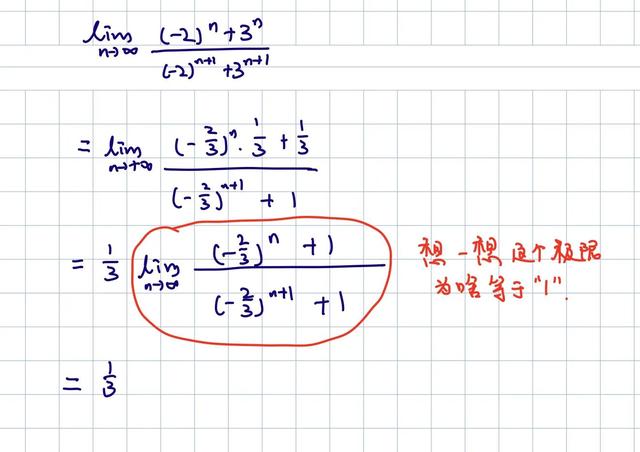 lim n→∞ ((-2)^n + 3^n) / ((-2)^{n+1} + 3^{n+1})
= lim n→+∞ ((-2/3)^n · 1/3 + 1/3) / ((-2/3)^{n+1} + 1)
= 1/3 lim n→∞ ((-2/3)^n + 1) / ((-2/3)^{n+1} + 1)
想一想这个极限
为啥等于"1".
= 1/3